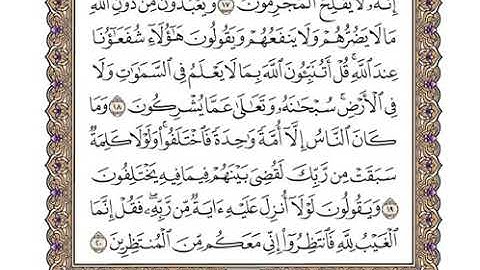 إِنَّهُۥ لَا يُفْلِحُ ٱلْمُجْرِمُونَ ١٧ وَيَعْبُدُونَ مِن دُونِ ٱللَّهِ
مَا لَا يَضُرُّهُمْ وَلَا يَنفَعُهُمْ وَيَقُولُونَ هَٰٓؤُلَآءِ شُفَعَٰٓؤُنَا
عِندَ ٱللَّهِۚ قُلْ أَتُنَبِّـُٔونَ ٱللَّهَ بِمَا لَا يَعْلَمُ فِى ٱلسَّمَٰوَٰتِ وَلَا
فِى ٱلْأَرْضِۚ سُبْحَٰنَهُۥ وَتَعَٰلَىٰ عَمَّا يُشْرِكُونَ ١٨ وَمَا
كَانَ ٱلنَّاسُ إِلَّآ أُمَّةً وَٰحِدَةً فَٱخْتَلَفُوا۟ۚ وَلَوْلَا كَلِمَةٌ
سَبَقَتْ مِن رَّبِّكَ لَقُضِىَ بَيْنَهُمْ فِيمَا فِيهِ يَخْتَلِفُونَ
١٩ وَيَقُولُونَ لَوْلَآ أُنزِلَ عَلَيْهِ ءَايَةٌ مِّن رَّبِّهِۦۖ فَقُلْ إِنَّمَا
ٱلْغَيْبُ لِلَّهِ فَٱنتَظِرُوٓا۟ إِنِّى مَعَكُم مِّنَ ٱلْمُنتَظِرِينَ ٢٠